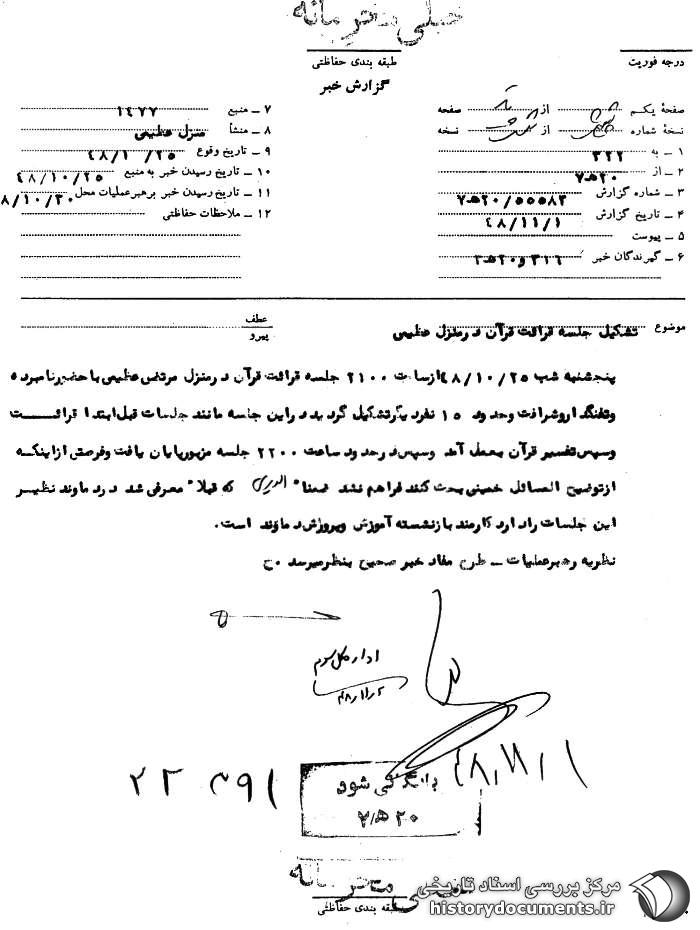 خیلی محرمانه
درجه فوریت
طبقه بندی حفاظتی
گزارش خبر
صفحهٔ یکم از صفحه
نسخهٔ شماره از نسخه
۱ – به ۳۲۲
۲ – از ۲۰ﻫ۷
۳ – شماره گزارش ۲۰/۵۵۵۸۳ﻫ۷
۴ – تاریخ گزارش ۴۸/۱۱/۱
۵ – پیوست
۶ – گیرندگان خبر ۳۱۶ و ۲۰ﻫ۳
۷ – منبع ۱۴۷۷
۸ – منشأ منزل عظیمی
۹ – تاریخ وقوع ۴۸/۱۰/۲۵
۱۰ – تاریخ رسیدن خبر به منبع ۴۸/۱۰/۲۵
۱۱ – تاریخ رسیدن خبر برهبر عملیات محل ۸/۱۰/۳۰
۱۲ – ملاحظات حفاظتی
موضوع تشکیل جلسه قرائت قرآن در منزل عظیمی
عطف
پیرو
پنجشنبه شب ۴۸/۱۰/۲۵ از ساعت ۲۱۰۰ جلسه قرائت قرآن در منزل مرتضی عظیمی با حضور نامبرده
و تفنگدار و شرافت وحدود ۱۵ نفر دیگر تشکیل گردید در این جلسه مانند جلسات قبل ابتدا قرائت
و سپس تفسیر قرآن بعمل آمد وسپس در حدود ساعت ۲۲۰۰ جلسه مزبور پایان یافت و فرصتی از اینکه
از توضیح المسائل خمینی بحث کنند فراهم نشد ضمنا" که قبلا" معرفی شد در دماوند نظیر
این جلسات را دارد کارمند بازنشسته آموزش و پرورش دماوند است.
نظریه رهبر عملیات – طرح مفاد خبر صحیح بنظر میرسد ح
اداره کل سوم
۴۸/۱۱/۱
۲۲ ۳۹۱
بایگانی شود
۲۰ ﻫ ۷
خیلی محرمانه
طبقه بندی حفاظتی
مرکز بررسی اسناد تاریخی
historydocuments.ir